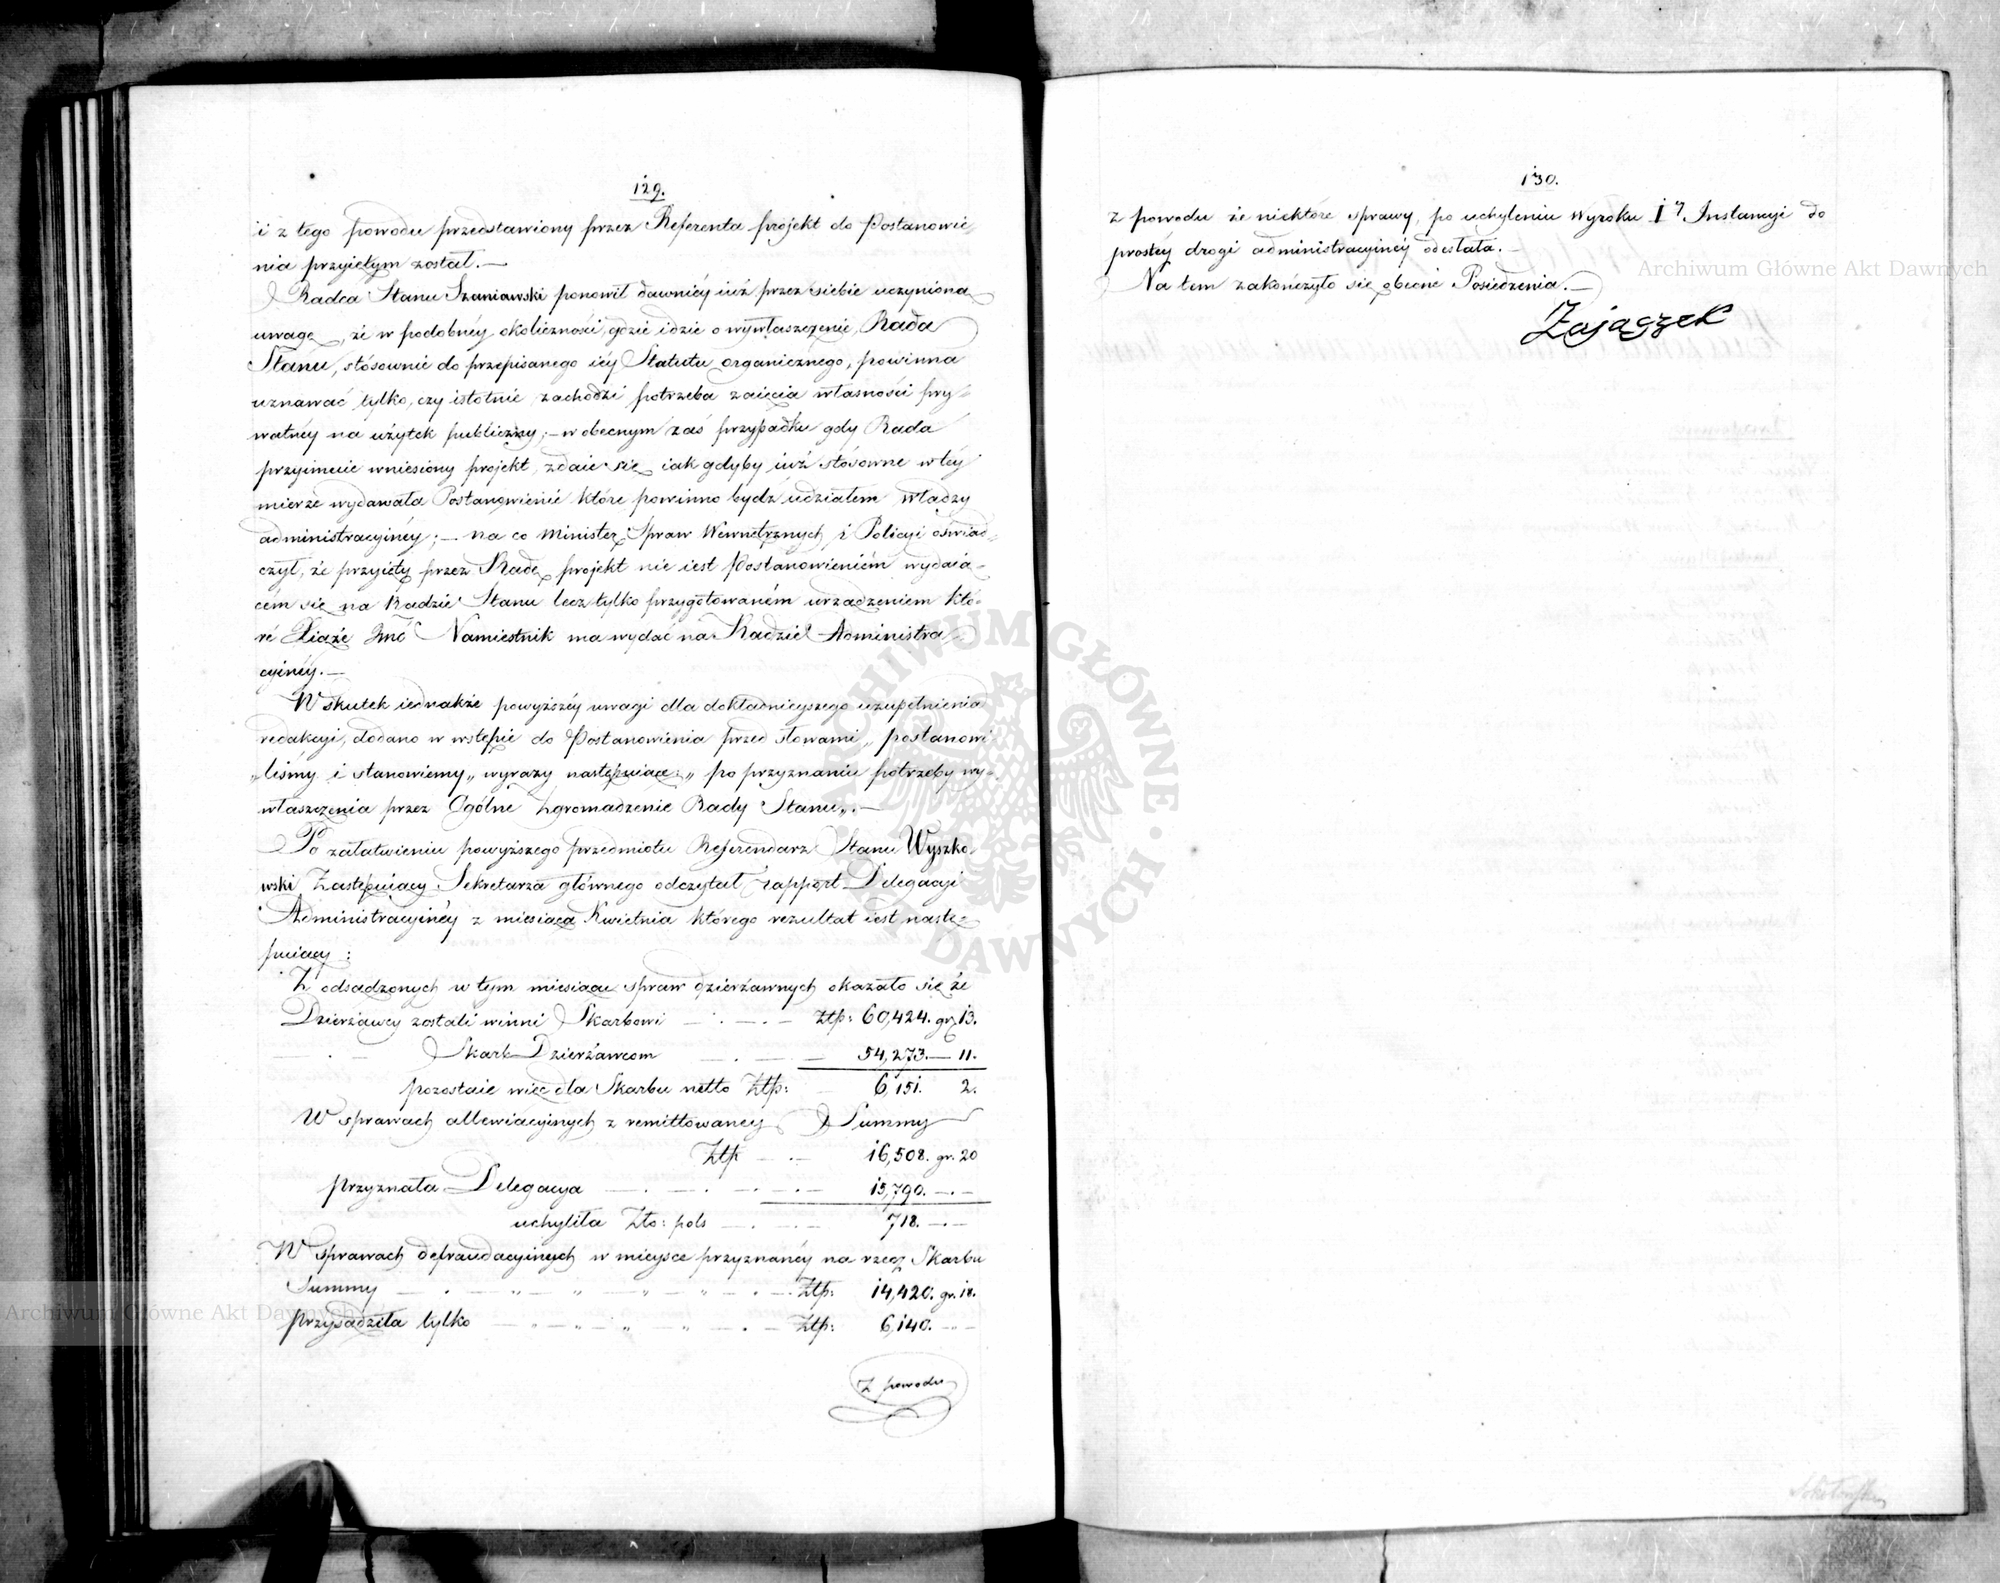 129.
i z tego powodu przedstawiony przez Referenta projekt do Postanowie
nia przyiętym został.—
Radca Stanu Szaniawski ponowił dawniéy iuż przez siebie uczynioną
uwagę, że w podobnéy okoliczności, gdzie idzie o wywłaszczenie, Rada
Stanu, stósownie do przepisanego iéy Statutu organicznego, powinna
uznawać tylko, czy istotnie zachodzi potrzeba zaięcia własności pry=
watnéy na użytek publiczny; — w obecnym zaś przypadku gdy Rada
przyimuie wniesiony projekt, zdaie się iak gdyby iuż stósowne w téy
mierze wydawała Postanowienie które powinno bydź udziałem władzy
administracyinéy; — na co Minister Spraw Wewnętrznych i Policyi oświad=
czył, że przyięty przez Radę projekt nie iest Postanowieniem wydaią=
cém się na Radzie Stanu lecz tylko przygotowaném urządzeniem któ=
ré Xiąże Jmć Namiestnik ma wydać na Radzie Administra
cyinéy.—
W skutek iednakże powyższéy uwagi dla dokładnieyszego uzupełnienia
redakcyi, dodano w wstępie do Postanowienia przed słowami „ postanowi
„liśmy i stanowiemy„ wyrazy następuiące: „ po przyznaniu potrzeby wy=
właszczenia przez Ogólne Zgromadzenie Rady Stanu„.—
Po załatwieniu powyższego przedmiotu Referendarz Stanu Wyszko=
wski Zastępuiący Sekretarza głównego odczytał rapport Delegacyi
Administracyinéy z miesiąca Kwietnia którego rezultat iest nastę=
puiący:
Z odsądzonych w tym miesiącu spraw dzierżawnych okazało się że
Dzierżawcy zostali winni Skarbowi — . — . — Złtp: 60,424. gr. 13.
Skarb Dzierżawcom — . — — 54,273. — 11.
pozostaie więc dla Skarbu netto Złtp: — 6,151. 2.
W sprawach allewiacyinych z remittowanéy Summy
Złtp — . — 16,508. gr. 20
przyznała Delegacya — . — . — . — 15,790. — . —
uchyliła Zło: pols — . — . — 718. — . —
W sprawach defraudacyinych w mieysce przyznanéy na rzecz Skarbu
Summy — . — „ — „ — „ — . — Złtp: 14,420. gr. 18.
przysądziła tylko — „ — „ — „ — . — Złtp: 6,140. — „ —
Z powodu
130.
z powodu że niektóre sprawy, po uchyleniu Wyroku Iéy Instancyi do
prostéy drogi administracyinéy odesłała.—
Na tem zakończyło się obecne Posiedzenie.—
Zajączek
Archiwum Główne Akt Dawnych
Archiwum Główne Akt Dawnych
ARCHIWUM GŁÓWNE AKT DAWNYCH